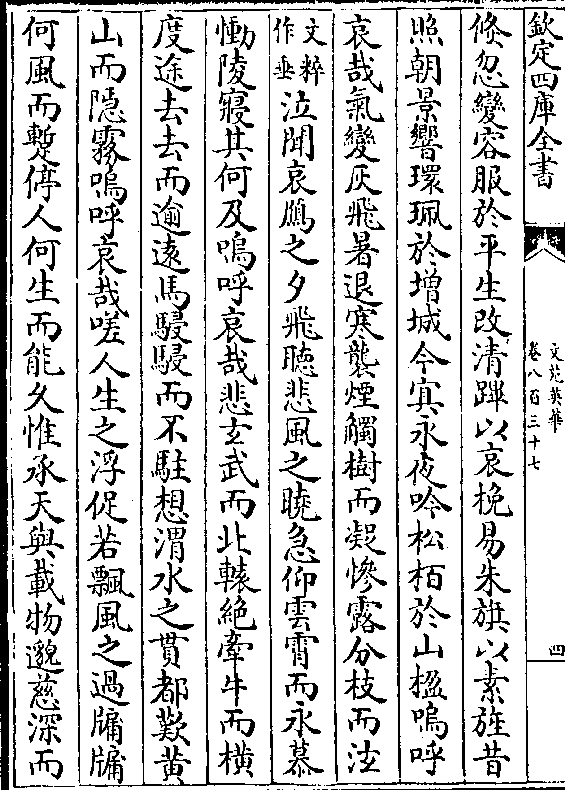 欽定四庫全書
文苑英華
卷八百三十七
四
倐忽變容服於平生改清蹕以哀挽易朱旗以素旌昔
照朝景響環珮於增城今寘永夜吟松栢於山楹嗚呼
哀哉氣變灰飛暑退寒襲煙觸樹而凝慘露分枝而泫
文粹作垂泣聞哀鴈之夕飛聽悲風之曉急仰雲霄而永慕
慟陵寢其何及嗚呼哀哉悲玄武而北轅絶牽牛而橫
度途去去而逾遠馬駸駸而不駐想渭水之貫都歎黄
山而隠霧嗚呼哀哉嗟人生之浮促若飄風之過牖牖
何風而蹔停人何生而能久惟承天與載物邈慈深而